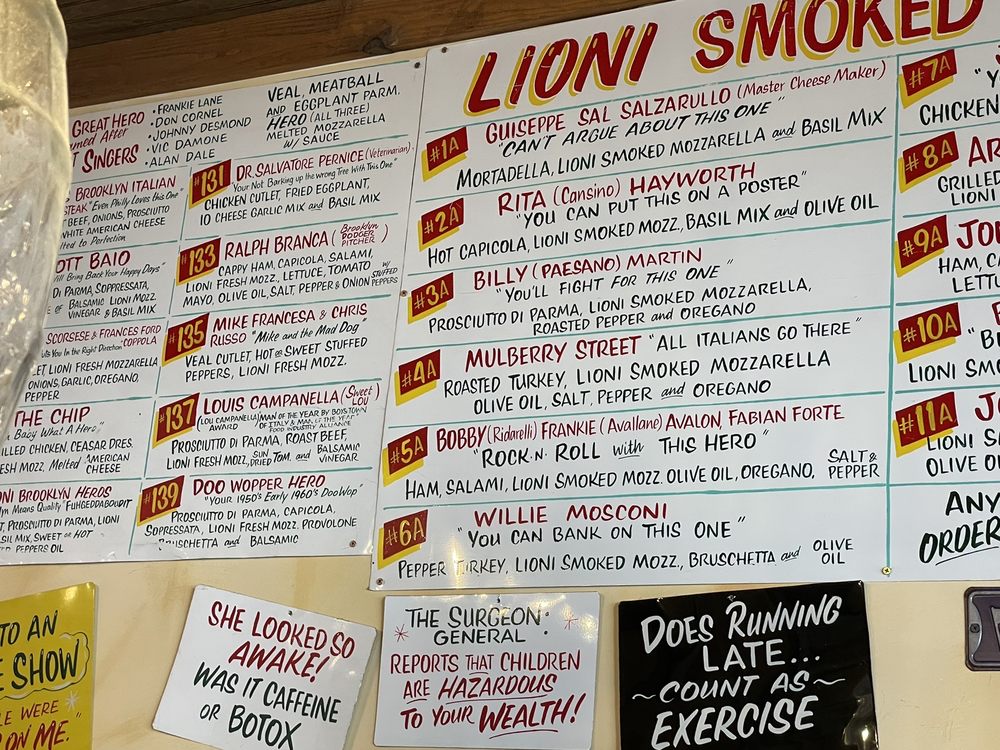 GREAT HERO
Named After
SINGERS
• FRANKIE LANE
• DON CORNEL
• JOHNNY DESMOND
• VIC DAMONE
• ALAN DALE
VEAL, MEATBALL
AND EGGPLANT PARM.
HERO (ALL THREE)
MELTED MOZZARELLA
W/ SAUCE
BROOKLYN ITALIAN
STEAK" "Even Philly Loves this One"
BEEF, ONIONS, PROSCIUTTO
WHITE AMERICAN CHEESE
to Perfection
OTT BAIO
Bring Back Your Happy Days"
DI PARMA, SOPPRESSATA,
BALSAMIC LIONI MOZZ.
VINEGAR & BASIL MIX
SCORSESE & FRANCES FORD
COPPOLA
You In the Right Direction"
LIONI FRESH MOZZARELLA
ONIONS, GARLIC, OREGANO,
PEPPER
THE CHIP
Baby What A Hero"
ILLED CHICKEN, CEASAR DRES.
ESH MOZZ, Melted AMERICAN
CHEESE
BROOKLYN HEROS
Means Quality "FUHGEDDABOUDIT
PROSCIUTTO DI PARMA, LIONI
MIX, SWEET or HOT
PEPPERS OIL
#131 DR. SALVATORE PERNICE (Veterinarian)
"Your Not Barking up the wrong Tree With This One"
CHICKEN CUTLET, FRIED EGGPLANT,
10 CHEESE GARLIC MIX and BASIL MIX
#133 RALPH BRANCA (Brooklyn
DODGER
PITCHER)
CAPPY HAM, CAPICOLA, SALAMI,
LIONI FRESH MOZZ., LETTUCE, TOMATO
MAYO, OLIVE OIL, SALT, PEPPER & ONION W/ STUFFED
PEPPERS
#135 MIKE FRANCESA & CHRIS
RUSSO "Mike and the Mad Dog"
VEAL CUTLET, HOT or SWEET STUFFED
PEPPERS, LIONI FRESH MOZZ.
#137 LOUIS CAMPANELLA (Sweet
LOU)
(LOU CAMPANELLA) MAN OF THE YEAR BY BOYSTOWN
AWARD OF ITALY & MAN OF THE YEAR
FOOD INDUSTRY ALLIANCE
PROSCIUTTO DI PARMA, ROAST BEEF,
LIONI FRESH MOZZ, SUN DRIED TOM. and BALSAMIC
VINEGAR
#139 DOO WOPPER HERO
"Your 1950's Early 1960's DooWop"
PROSCIUTTO DI PARMA, CAPICOLA,
SOPRESSATA, LIONI FRESH MOZZ. PROVOLONE
BRUSCHETTA and BALSAMIC
LIONI SMOKED
#1A GUISEPPE SAL SALZARULLO (Master Cheese Maker)
"CAN'T ARGUE ABOUT THIS ONE"
MORTADELLA, LIONI SMOKED MOZZARELLA and BASIL MIX
#2A RITA (Cansino) HAYWORTH
"YOU CAN PUT THIS ON A POSTER"
HOT CAPICOLA, LIONI SMOKED MOZZ., BASIL MIX and OLIVE OIL
#3A BILLY (PAESANO) MARTIN
"YOU'LL FIGHT FOR THIS ONE"
PROSCIUTTO DI PARMA, LIONI SMOKED MOZZARELLA,
ROASTED PEPPER and OREGANO
#4A MULBERRY STREET "ALL ITALIANS GO THERE"
ROASTED TURKEY, LIONI SMOKED MOZZARELLA
OLIVE OIL, SALT, PEPPER and OREGANO
#5A BOBBY (Ridarelli) FRANKIE (Avallane) AVALON, FABIAN FORTE
"ROCK N' ROLL with THIS HERO"
HAM, SALAMI, LIONI SMOKED MOZZ. OLIVE OIL, OREGANO, SALT &
PEPPER
#6A WILLIE MOSCONI
"YOU CAN BANK ON THIS ONE"
PEPPER TURKEY, LIONI SMOKED MOZZ., BRUSCHETTA and OLIVE
OIL
#7A
"Y
CHICKEN
#8A AR
GRILLED
LIONI
#9A JO
HAM, CA
LETTU
#10A
"B
LIONI SM
#11A J
LIONI S
OLIVE O
ANY
ORDER
TO AN
SHOW
LE WERE
ON ME."
SHE LOOKED SO
AWAKE!
WAS IT CAFFEINE
OR BOTOX
THE SURGEON
GENERAL
REPORTS THAT CHILDREN
ARE HAZARDOUS
TO YOUR WEALTH!
DOES RUNNING
LATE...
~COUNT AS~
EXERCISE